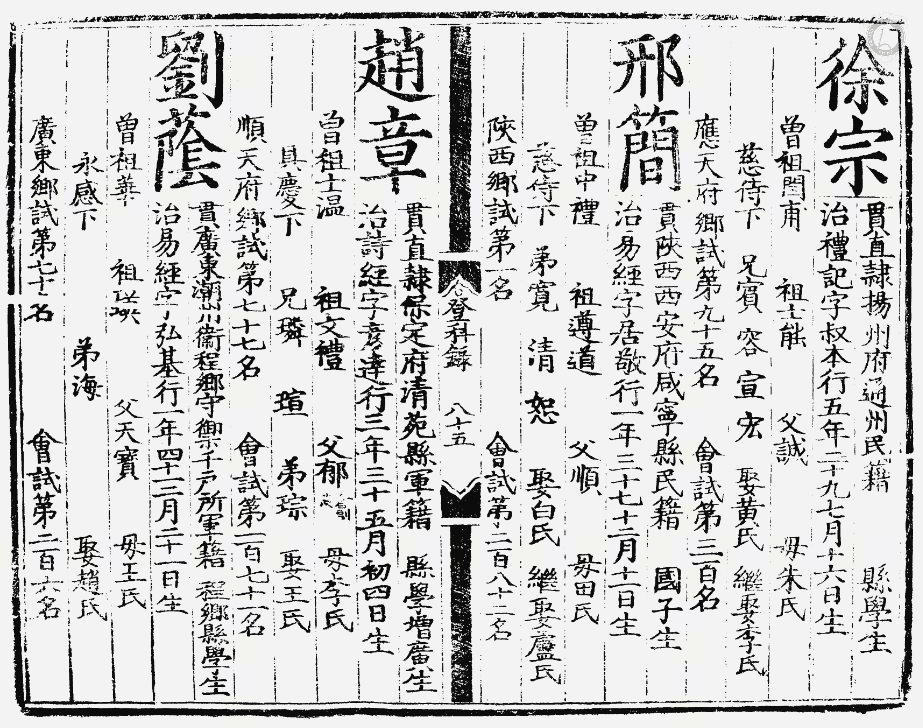 徐宗
貫直隷揚州府通州民籍 縣學生
治禮記字叔本行五年二十九七月十六日生
曾祖閏甫 祖士能 父誠 母朱氏
慈侍下 兄賓 容 宣 宏 娶黄氏 繼娶李氏
應天府鄉試第九十五名 會試第三百名
邢簡
貫陝西西安府咸寧縣民籍 國子生
治易經字居敬行一年三十七十二月十一日生
曾祖中禮 祖遵道 父順 母田氏
慈侍下 弟寬 清 恕 娶白氏 繼娶盧氏
陝西鄉試第一名 會試第二百八十二名
登科録 八十五
趙章
貫直隷保定府清苑縣軍籍 縣學增廣生
治詩經字彦達行三年三十五月初四日生
曾祖士温 祖文禮 父郁 母李氏
具慶下 兄璘 瑄 弟琮 娶王氏
順天府鄉試第七十七名 會試第一百七十一名
劉蔭
貫廣東潮州衞程鄉守禦千戸所軍籍 程鄉縣學生
治易經字弘基行一年四十三月二十一日生
曾祖華 祖瑛 父天寳 母王氏
永感下 弟海 娶趙氏
廣東鄉試第七十二名 會試第二百六名